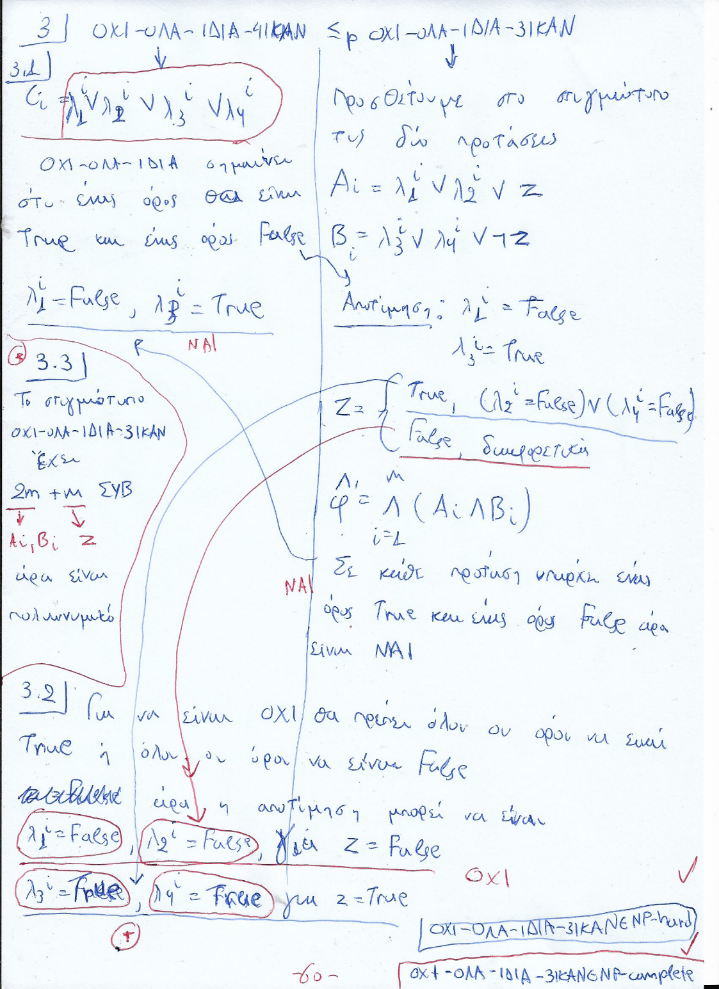 3 ΟΧΙ-ΟΛΑ-ΙΔΙΑ-4ΙΚΑΝ ≤p ΟΧΙ-ΟΛΑ-ΙΔΙΑ-3ΙΚΑΝ
3.1
Ci = λ1^i ∨ λ2^i ∨ λ3^i ∨ λ4^i
ΟΧΙ-ΟΛΑ-ΙΔΙΑ σημαίνει
ότι ένας όρος είναι
True και ένας όρος False
λ1^i = False, λ3^i = True
ΝΑΙ
Προσθέτουμε στο στιγμιότυπο
τις δύο προτάσεις
Ai = λ1^i ∨ λ2^i ∨ z
Bi = λ3^i ∨ λ4^i ∨ ¬z
Αποτίμηση: λ1^i = False
λ3^i = True
Z = { True, (λ2^i = False) ∨ (λ4^i = False)
False, διαφορετικά
φ^' = ∧ i=1 m (Ai ∧ Bi)
ΝΑΙ
Σε κάθε πρόταση υπάρχει ένας
όρος True και ένας όρος False άρα
είναι ΝΑΙ
* 3.3
Το στιγμιότυπο
ΟΧΙ-ΟΛΑ-ΙΔΙΑ-3ΙΚΑΝ
Έχει
2m + m ΣΥΒ
Ai, Bi z
άρα είναι
πολυωνυμικό
3.2 Για να είναι ΟΧΙ θα πρέπει όλοι οι όροι να είναι
True ή όλοι οι όροι να είναι False
άρα η αποτίμηση μπορεί να είναι
λ1^i = False, λ2^i = False, για z = False
ΟΧΙ
λ3^i = True, λ4^i = True για z = True
*
ΟΧΙ-ΟΛΑ-ΙΔΙΑ-3ΙΚΑΝ∈NP-hard
-60-
ΟΧΙ-ΟΛΑ-ΙΔΙΑ-3ΙΚΑΝ∈NP-complete